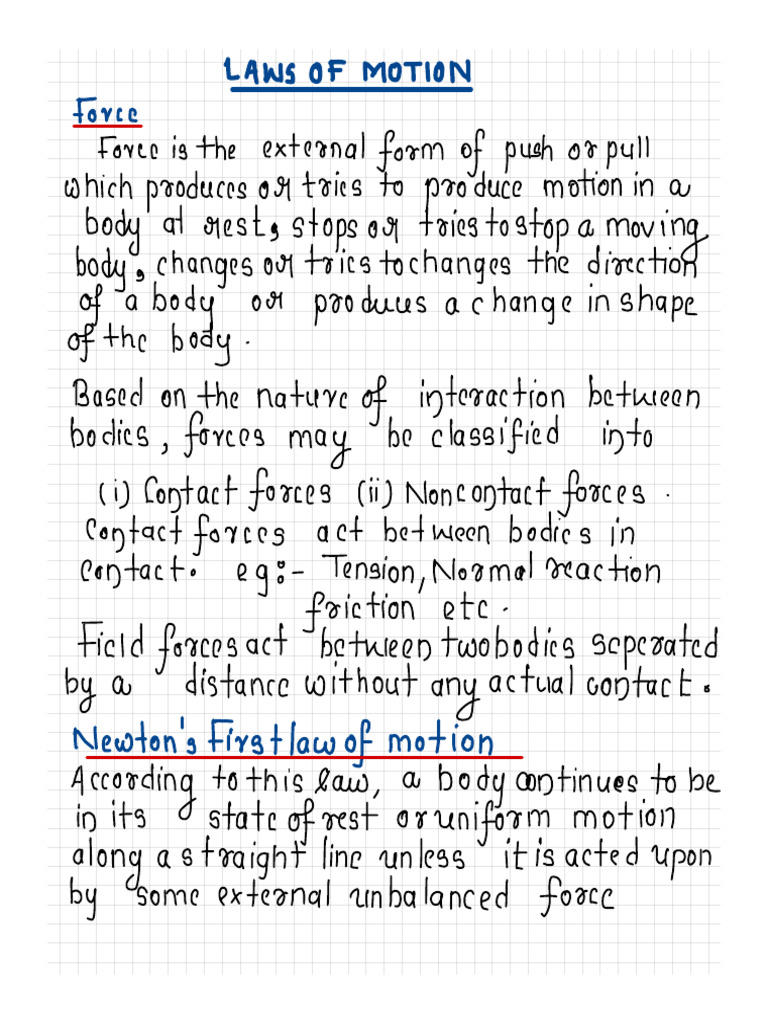 LAWS OF MOTION
Force
Force is the external form of push or pull
which produces or tries to produce motion in a
body at rest, stops or tries to stop a moving
body, changes or tries to changes the direction
of a body or produces a change in shape
of the body.
Based on the nature of interaction between
bodies, forces may be classified into
(i) Contact forces (ii) Noncontact forces.
Contact forces act between bodies in
contact. eg:- Tension, Normal reaction
friction etc.
Field forces act between two bodies seperated
by a distance without any actual contact.
Newton's First law of motion
According to this law, a body continues to be
in its state of rest or uniform motion
along a straight line unless it is acted upon
by some external unbalanced force